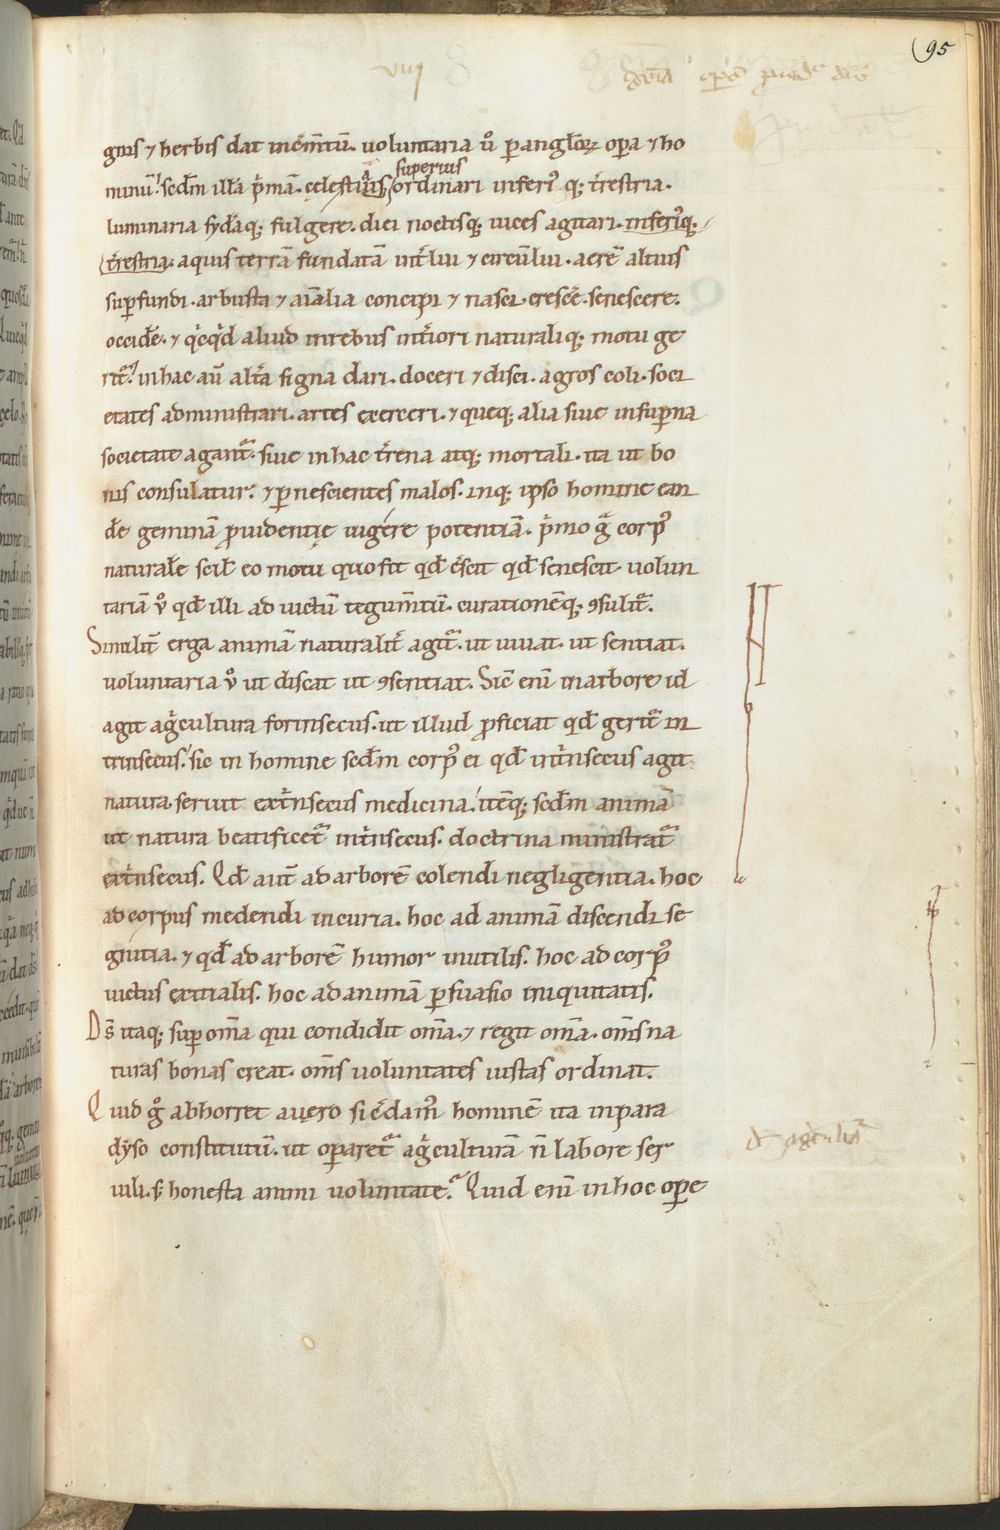 95
viii
gnis ⁊ herbis dat increm̅tu̅. voluntaria ů p̱ angl̅oꝝ op̱a ⁊ ho
minu̅. sc̅d̅m illa̅ p̍ma̅. cęlestia superius ordinari inferi᷒ q; t̅restria.
luminaria sydaq; fulgere. diei noctisq; vices agitari. inferi᷒q;
t̅restria. aquis terra̅ fundata̅ int̅lui ⁊ circu̅lui. aere̅ altius
sup̱fundi. arbusta ⁊ ai̅alia concipi ⁊ nasci. cresce̅. senescere.
occide̅. ⁊ q̍cq̍d aliud in rebus int̅iori naturaliq; motu ge
rit̅. in hac au̅ alt̅a signa dari. doceri ⁊ disci. agros coli. soci
etates administrari. artes exerceri. ⁊ queq; alia siue in sup̱na
societate agant̅. siue in hac t̅rena atq; mortali. ita ut bo
nis consulatur. ⁊ p̱ nescientes malos. inq; ipso homine ean
de̅ gemina̅ p̱uidentię uigere potentia̅. p̍mo g̊ corp᷒
naturale̅ scil̅ eo motu quo fit qd̅ c̅scit qd̅ senescit. volun
taria̅ v̊ qd̅ illi ad uictu̅ tegum̅tu̅. curatione̅q; ꝯsulit̅.
Similit̅ erga anima̅ naturalit̅ agit̅. ut uiuat. ut sentiat.
voluntaria v̊ ut discat ut ꝯsentiat. Sic̅ eni̅ in arbore id
agit ag̍cultura forinsecus. ut illud p̱ficiat qd̅ gerit̅ in
trinsecus. sic in homine sc̅d̅m corp᷒ ei qd̅ int̍nsecus agit
natura. seruit ext̍nsecus medicina. ite̅q; sc̅d̅m anima̅
ut natura beatificet̅ int̍nsecus. doctrina ministrat̅
ext̍nsecus. Qd̅ aut̅ ad arbore̅ colendi negligentia. hoc
ad corpus medendi incuria. hoc ad anima̅ discendi se
gnitia. ⁊ qd̅ ad arbore̅ humor inutilis. hoc ad corp᷒
uictus exitialis. hoc ad anima̅ p̱suasio iniquitatis.
Ds̅ itaq; sup̱ om̅a qui condidit om̅a. ⁊ regit om̅a. om̅s na
turas bonas creat. om̅s voluntates iustas ordinat.
Quid g̊ abhorret a uero si c̅dam᷒ homine̅ ita in para
dyso constitutu̅. ut op̱aret̅ ag̍cultura̅ n̅ labore ser
uili. s; honesta animi voluntate. Quid eni̅ in hoc op̱e